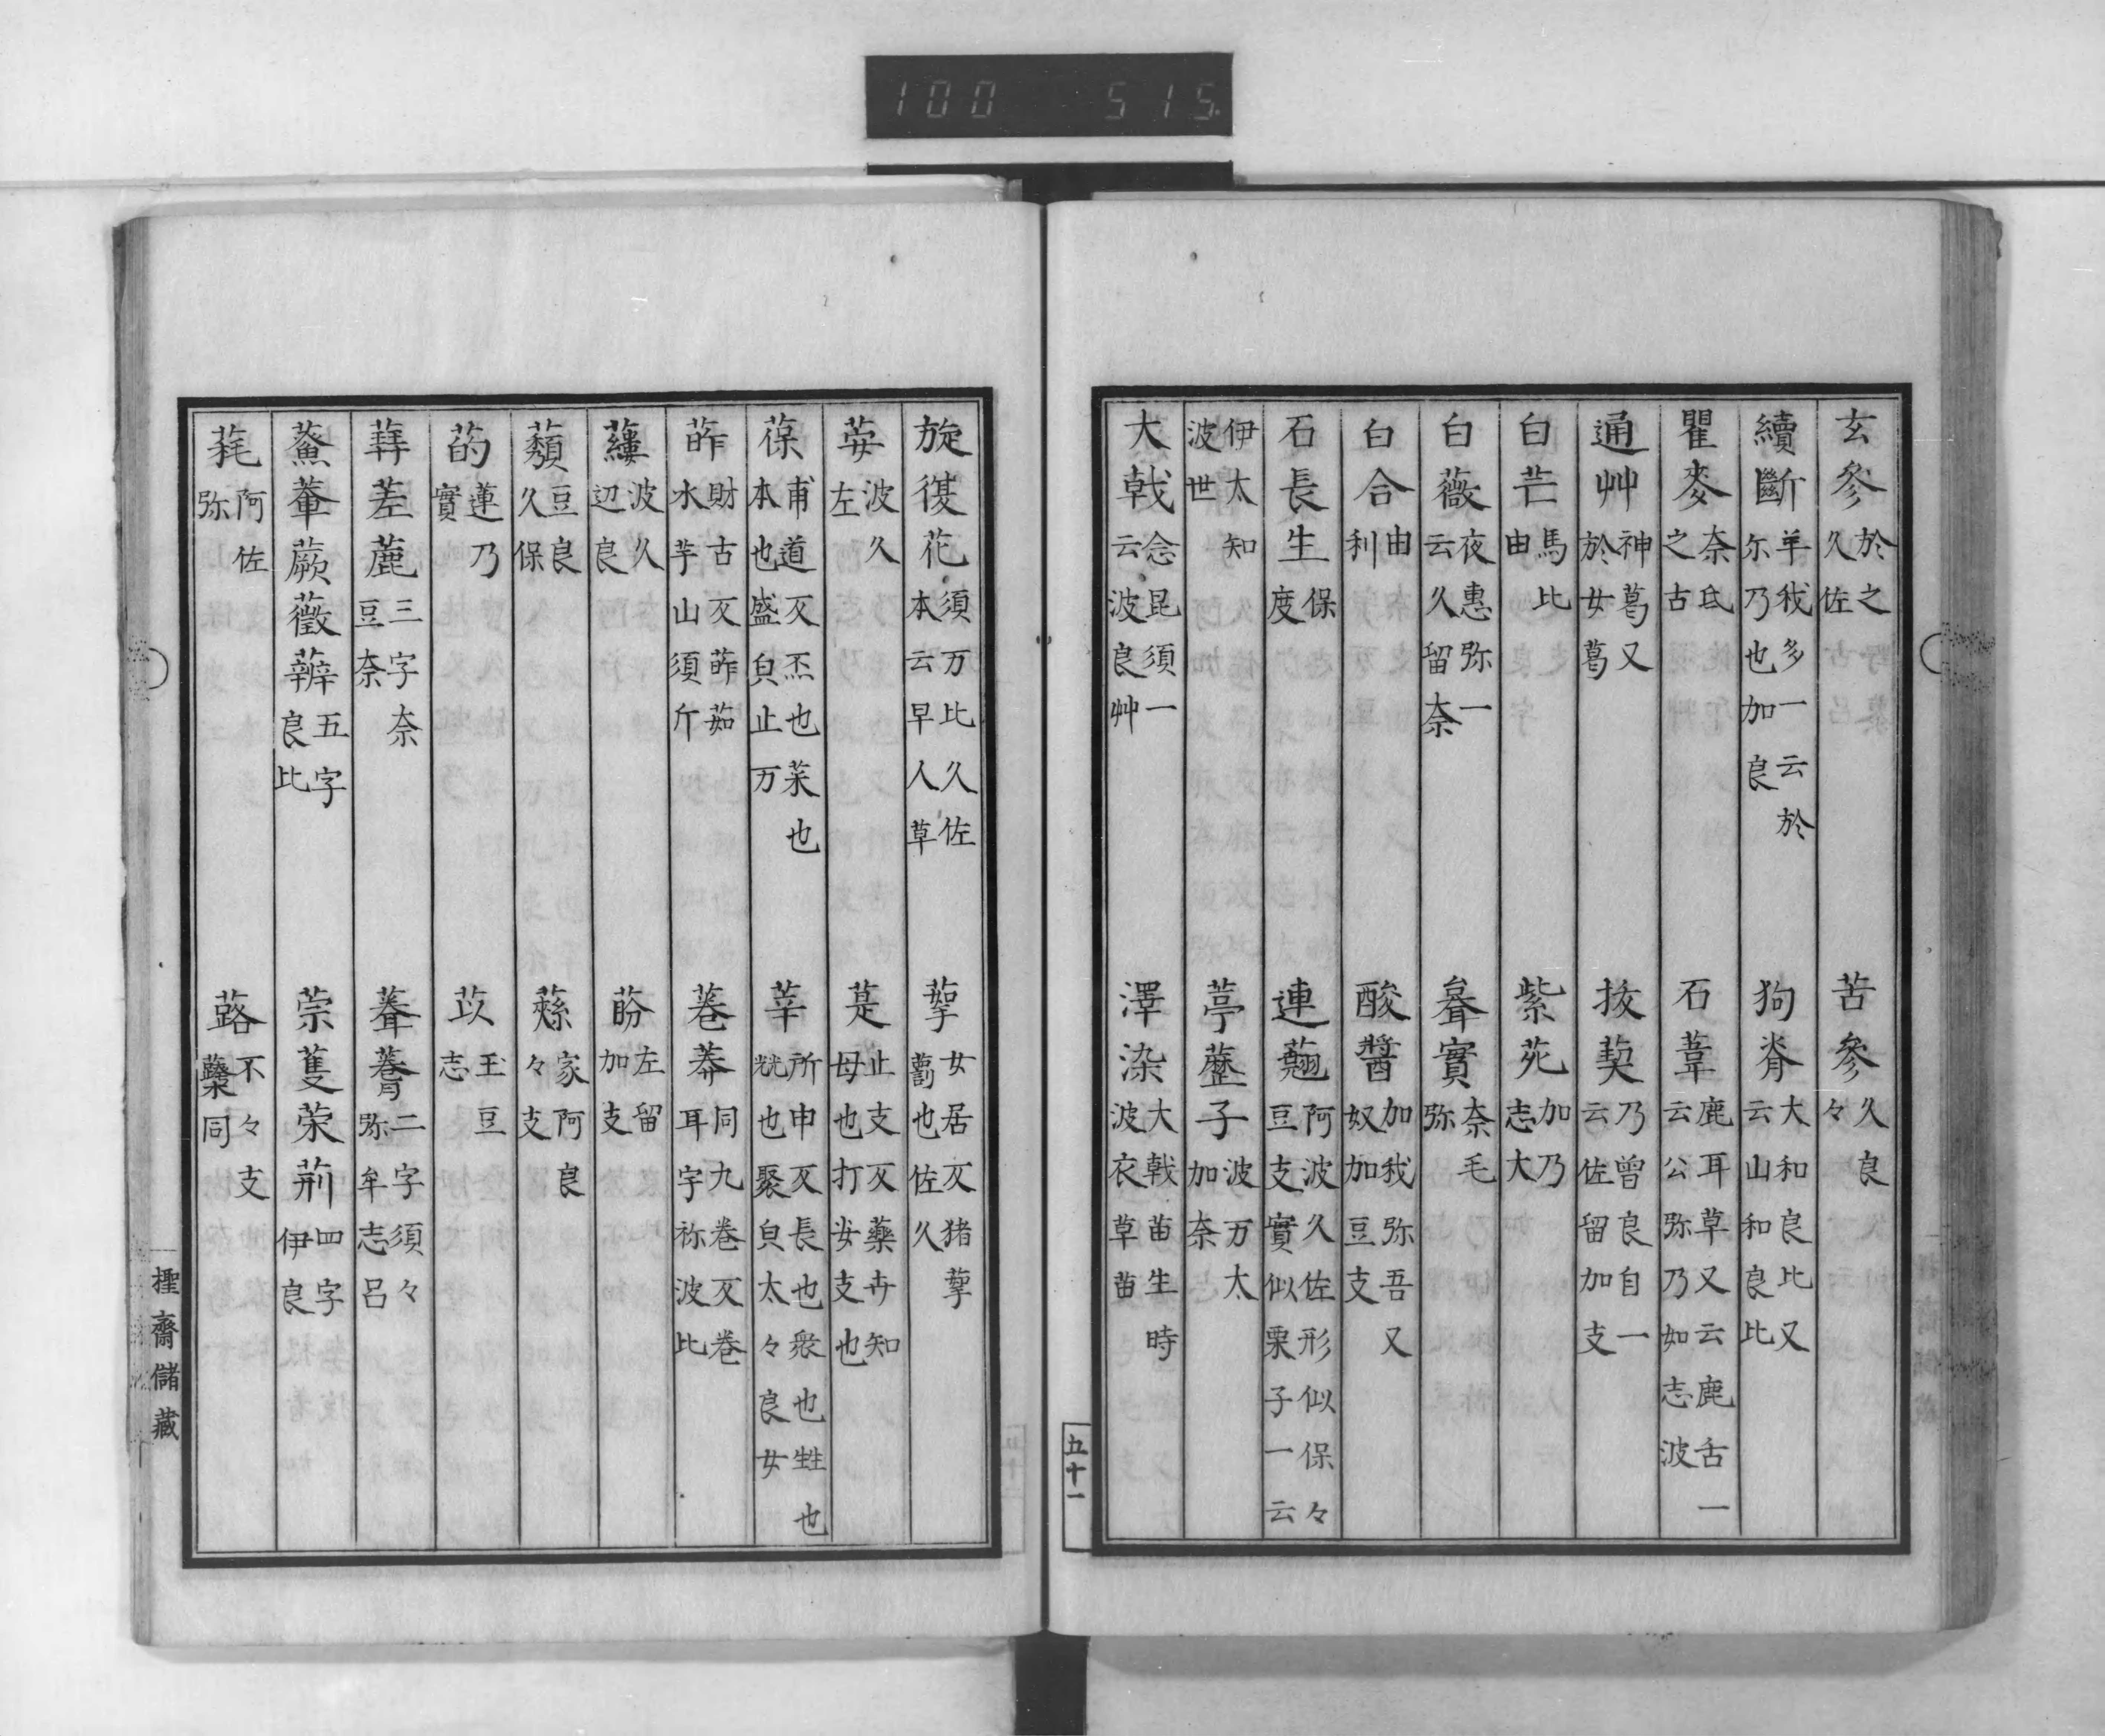 100 515.
玄參 於之久佐 苦參 久良々
續斷 羊我多一云於尓乃也加良 狗脊 大和良比又云山和良比
瞿麥 奈氐之古 石葦 鹿耳草又云鹿舌一云公弥乃如志波
通艸 神葛又於女葛 拔葜 乃曾良自一云佐留加支
白芒 馬比由 紫苑 加乃志大
白薇 夜惠弥一云久留奈 實 奈毛弥
白合 由利 酸醬 加我弥吾又奴加豆支
石長生 保度 連翹 阿波久佐形似保々豆支實似栗子一云
伊太知波世 葶藶子 波万太加奈
大戟 念昆須一云波良艸 澤染 大戟苗生時波衣草苗
五十一
旋復花 須万比久佐本云早人草 女居反猪也佐久
波久左 是 止支反藥卉知母也打安支也
葆 甫道反丕也菜也本也盛皃止万 莘 所申反長也衆也甡也也聚皃太々良女
財古反茹水芋山須斤 同九卷反卷耳字祢波比
波久辺良 左留加支
豆良久保 家阿良々支
菂 蓮乃實 苡 玉豆志
差 三字奈豆奈 二字須々弥牟志呂
蕨薇 五字良比 荣荊 四字伊良
阿佐弥 蕗 不々支同
㮚齋儲藏